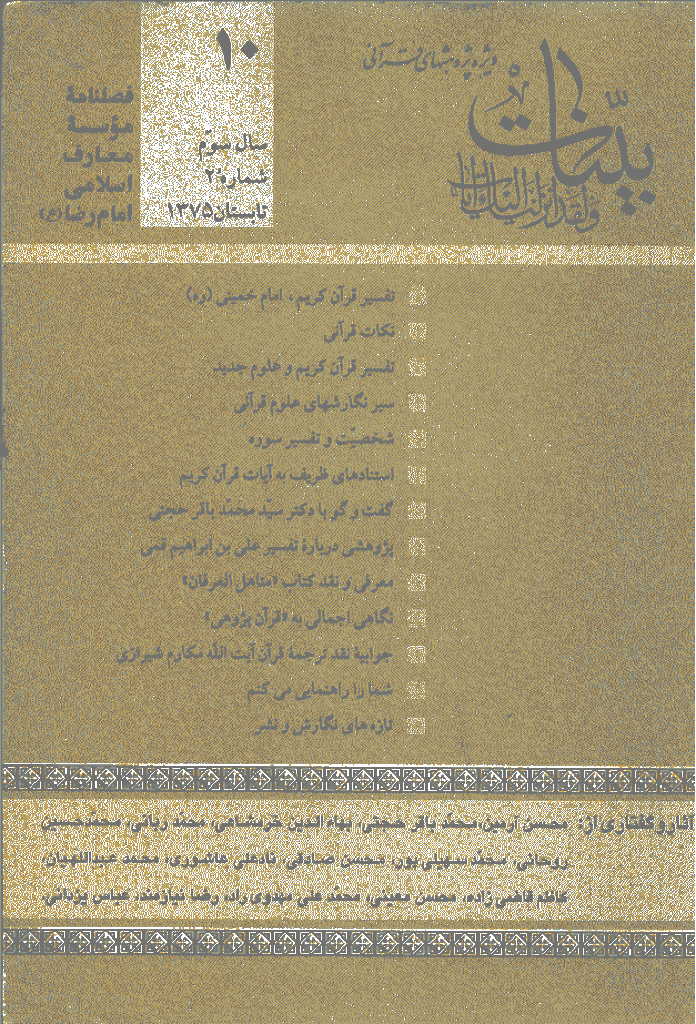 ویژه پژوهشهای قرآنی
بیّنات
ولقد انزلنا الیک آیات
۱۰
سال سوّم
شمارهٔ ۲
تابستان ۱۳۷۵
فصلنامهٔ
مؤسسهٔ
معارف
اسلامی
امام رضا (ع)
تفسیر قرآن کریم، امام خمینی (ره)
نکات قرآنی
تفسیر قرآن کریم و علوم جدید
سیر نگارشهای علوم قرآنی
شخصیّت و تفسیر سوره
استنادهای ظریف به آیات قرآن کریم
گفت و گو با دکتر سیّد محمّد باقر حجتی
پژوهشی دربارهٔ تفسیر علی بن ابراهیم قمی
معرفی و نقد کتاب «مناهل العرفان»
نگاهی اجمالی به «قرآن پژوهی»
جوابیهٔ نقد ترجمهٔ قرآن آیت الله مکارم شیرازی
شما را راهنمایی می کنیم
تازه های نگارش و نشر
آثار و گفتاری از: محسن آرمین، محمّد باقر حجتی، بهاء الدین خرمشاهی، محمّد ربانی، محمّدحسین
روحانی، محمّد سهیلی پور، محسن صادقی، نادعلی عاشوری، محمد عبداللهیان،
کاظم قاضی زاده، محسن معینی، محمّد علی مهدوی راد، رضا نیازمند، عباس یزدانی.